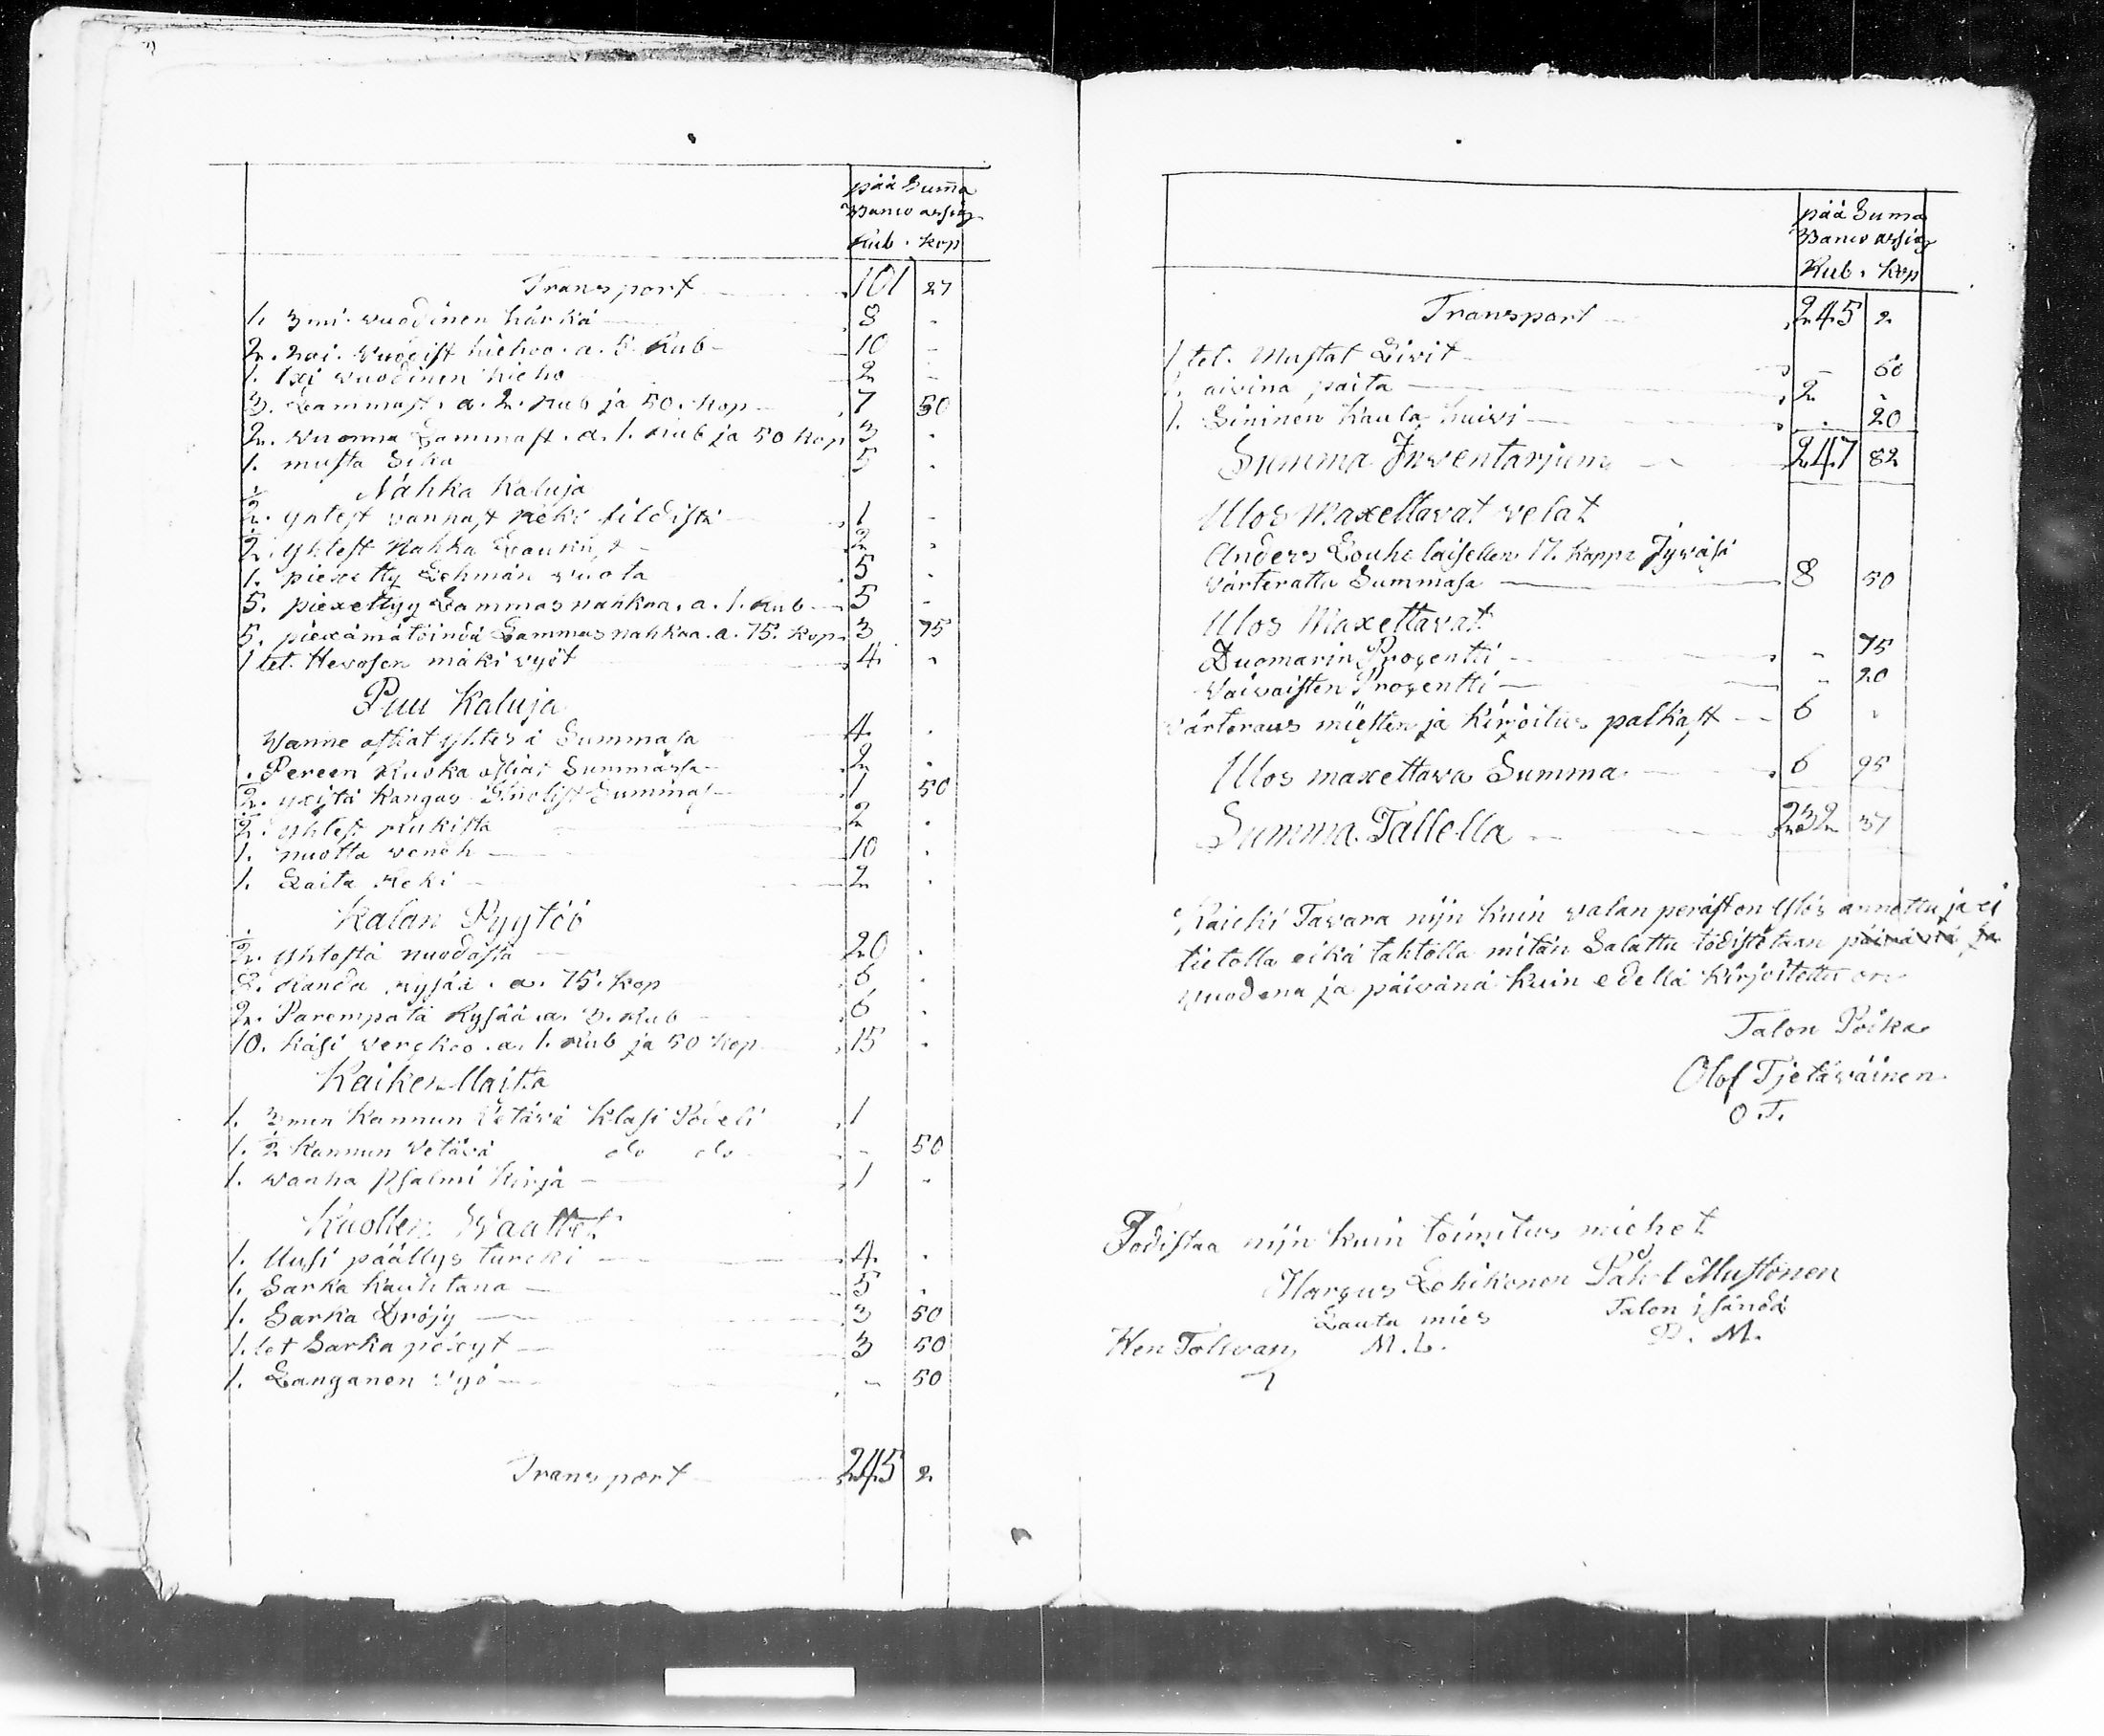 pää Sum̄a
Banco assig
Rub. kop
Transport 101 27
1. 3mi. wuodinen härkä 8 -
2. 2xi. wuodist hiehoo. a. 5. Rub 10 -
1. 1xi wuodinen hieho 2 -
3. Lammast. a. 2. Rub ja 50. kop 7 50
2. wuonna Lammast. a. 1. Rub ja 50 kop 3 -
1. musta Sika 5 -
Nahka Kaluja
1/2. yhtest wannast Reki 1 -
1/2. yhtest Nahka 2 -
1. piexetty Lehmän wuota 5 -
5. piexettyy Lammas nahkaa. a. 1. Rub 5 -
5. piexämätöindä Lammas nahkaa. a. 75. kop 3 75
1 tet. Hevosen mäki vyöt 4 -
Puu Kaluja
Wanne astiat yhtesä Summasa 4 -
Pereen Ruoka astiat Summassa 2 -
1/2. yxistä Kangas Summas 1 50
1/2. yhtest Rukista 2 -
1. nuotta veneh 10 -
1. Laita Reki 2 -
Kalan Pyytöö
1/2. yhtestä nuodasta 20 -
8. Randa rysää. a. 75. kop 6 -
2. Parempata Rysää a. 3. Rub 6 -
10. käsi verckoo. a. 1. Rub ja 50 kop 15 -
Kaikenllaista
1. 3men Kannun Vetävä Klasi Poteli 1
1. 1/2 Kannun Vetävä do do - 50
1. wanha Psalmi Kirja 1 -
Kuollen Waattet
1. Uusi päällys turcki 4 -
1. Sarka Kauhtana 5 -
1. Sarka Dröijy 3 50
1. tet Sarka pöxyt 3 50
1. Langanen vyö - 50
Transport 245 2
pää Suma
Banco assig
Rub. Kop
Transport 245 2
1 tet. Mustat Livit - 60
1. aivina paita 2 -
1. Sininen Kaula huivi - 20
Summa Inventarjum 247 82
Ulos Maxettavat velat
Anders Louhelaisellen 17. kappa Jyväsi
värterattu Summasa 8 50
Ulos Maxettavat
Duomarin Procentti - 75
Vaivaisten Procentti - 20
värteraus miesten ja Kirjoitus palkast 6 -
Ulos maxettava Summa 6 95
Summa Tallella 232 37
Kaicki Tavara nijn kuin valan peräst on Ylös annettu ja ei
tietolla eikä tahtolla mitän Salattu todistetaan päivänä ja
vuodena ja päivänä kuin edellä kirjoitettu on
Talon Poika
Olof Tjetäväinen
O. T.
Todistaa nijn kuin toimitus miehet
Marcus Lehikonen Påhl Mustonen
Lauta mies Talon isändä
Hen Tolvan M. L. P. M.